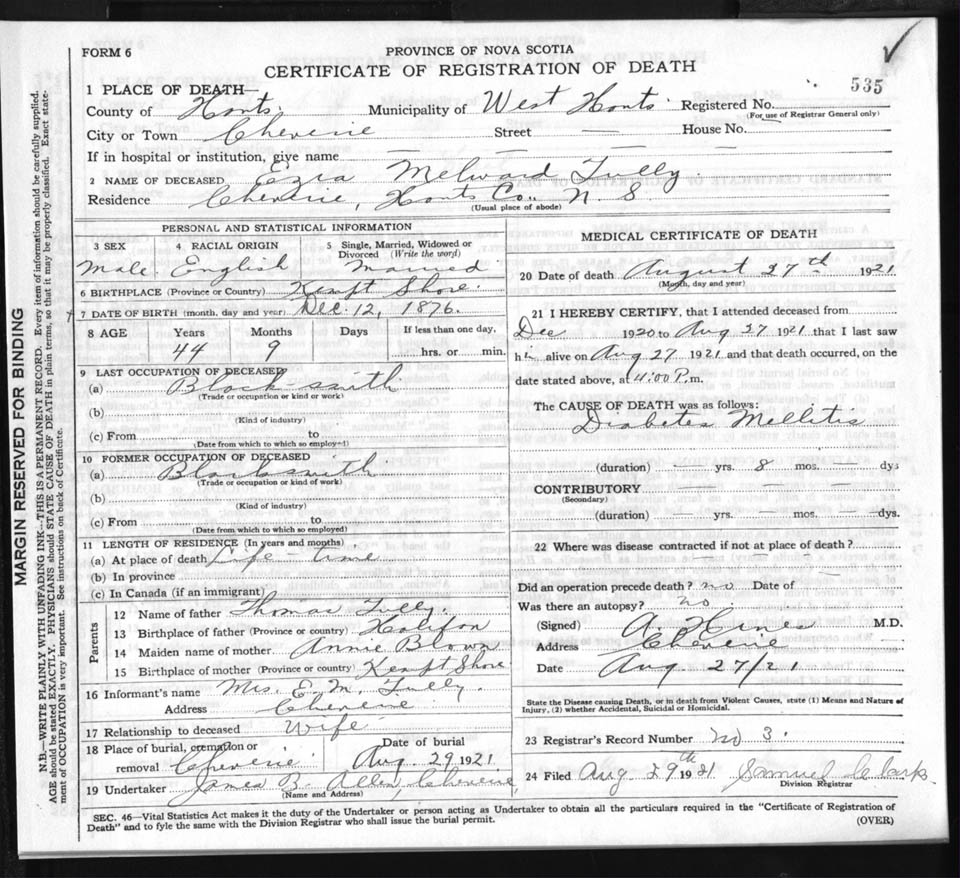 FORM 6
PROVINCE OF NOVA SCOTIA
CERTIFICATE OF REGISTRATION OF DEATH
535
1 PLACE OF DEATH—
County of Hants. Municipality of West Hants. Registered No.
(For use of Registrar General only)
City or Town Cheverie Street — House No.
If in hospital or institution, give name — — — —
2 NAME OF DECEASED Ezra Melward Tully.
Residence Cheverie, Hants Co., N. S.
(Usual place of abode)
PERSONAL AND STATISTICAL INFORMATION
3 SEX 4 RACIAL ORIGIN 5 Single, Married, Widowed or Divorced (Write the word)
Male. English Married
6 BIRTHPLACE (Province or Country) Kempt Shore.
7 DATE OF BIRTH (month, day and year) Dec. 12, 1876.
8 AGE Years Months Days If less than one day,
44 9 hrs. or min.
9 LAST OCCUPATION OF DECEASED
(a) Blacksmith
(Trade or occupation or kind or work)
(b)
(Kind of industry)
(c) From to
(Date from which to which so employed)
10 FORMER OCCUPATION OF DECEASED
(a) Blacksmith
(Trade or occupation or kind of work)
(b)
(Kind of industry)
(c) From to
(Date from which to which so employed)
11 LENGTH OF RESIDENCE (In years and months)
(a) At place of death Life-time
(b) In province
(c) In Canada (if an immigrant)
Parents
12 Name of father Thomas Tully.
13 Birthplace of father (Province or country) Halifax
14 Maiden name of mother Annie Brown
15 Birthplace of mother (Province or country) Kempt Shore
16 Informant's name Mrs. E. M. Tully.
Address Cheverie
17 Relationship to deceased Wife
18 Place of burial, cremation or removal Cheverie Date of burial Aug. 29 1921
19 Undertaker James B. Allen Cheverie
(Name and Address)
MEDICAL CERTIFICATE OF DEATH
20 Date of death August 27th 1921
(Month, day and year)
21 I HEREBY CERTIFY, that I attended deceased from
Dec 1920 to Aug 27 1921 that I last saw
him alive on Aug 27 1921 and that death occurred, on the
date stated above, at 4:00 P.m.
The CAUSE OF DEATH was as follows:
Diabetes Mellitis
(duration) — yrs. 8 mos. — dys
CONTRIBUTORY — — — —
(Secondary)
(duration) — yrs. — mos. — dys.
22 Where was disease contracted if not at place of death?
—
Did an operation precede death? no Date of —
Was there an autopsy? no.
(Signed) A. Hines M.D.
Address Cheverie
Date Aug 27/21
State the Disease causing Death, or in death from Violent Causes, state (1) Means and Nature of
Injury, (2) whether Accidental, Suicidal or Homicidal.
23 Registrar's Record Number no 3.
24 Filed Aug 29th 1921. Samuel Clark
Division Registrar
SEC. 46—Vital Statistics Act makes it the duty of the Undertaker or person acting as Undertaker to obtain all the particulars required in the "Certificate of Registration of
Death" and to fyle the same with the Division Registrar who shall issue the burial permit.
(OVER)
MARGIN RESERVED FOR BINDING
N.B.—WRITE PLAINLY WITH UNFADING INK—THIS IS A PERMANENT RECORD. Every item of information should be carefully supplied.
AGE should be stated EXACTLY. PHYSICIANS should STATE CAUSE OF DEATH in plain terms, so that it may be properly classified. Exact state-
ment of OCCUPATION is very important. See instructions on back of Certificate.